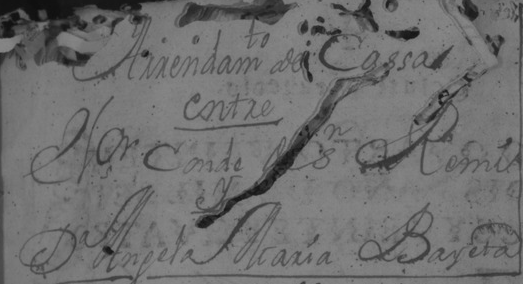 Arrendam.to de Cassa
entre
Nor Conde de S.n Remi
Y
D.a Angela Maria Bayeta